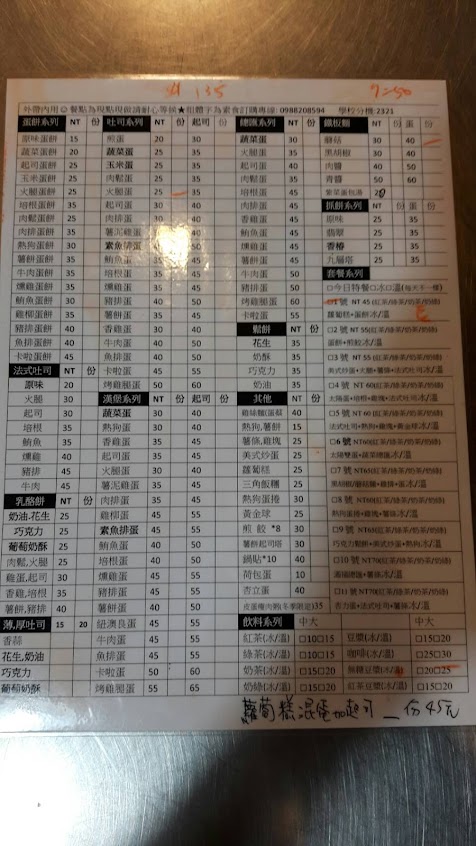 外帶內用☺餐點為現點現做請耐心等候★粗體字為素食訂購專線: 0988208594 學校分機:2321
蛋餅系列 NT 份
原味蛋餅 15
蔬菜蛋餅 20
起司蛋餅 25
玉米蛋餅 25
火腿蛋餅 25
培根蛋餅 35
肉鬆蛋餅 35
肉排蛋餅 35
熱狗蛋餅 30
牛肉蛋餅 35
燻雞蛋餅 35
鮪魚蛋餅 30
雞柳蛋餅 35
豬排蛋餅 40
魚排蛋餅 40
卡啦蛋餅 45
法式吐司 NT 份
原味 20
火腿 30
起司 30
培根 35
鮪魚 35
燻雞 40
豬排 45
牛肉 45
乳酪餅 NT 份
奶油.花生 25
巧克力 25
葡萄奶酥 25
肉鬆,火腿 30
雞蛋,起司 30
香雞,培根 35
薯餅,豬排 40
薄,厚吐司 15 20
香蒜
花生,奶油
巧克力
葡萄奶酥
吐司系列 NT 份 起司 份
煎蛋 20 30
蔬菜蛋 25 35
玉米蛋 25 35
肉鬆蛋 25 35
火腿蛋 25 35
培根蛋 30 40
肉排蛋 30 40
薯泥雞蛋
素魚排蛋
鮪魚蛋 35
培根蛋 35
豬排蛋 40 50
香雞蛋 30 40
牛肉蛋 40 50
魚排蛋 40 50
卡啦蛋 45
烤雞腿蛋 50 60
漢堡系列 NT 份 起司 份
蔬菜蛋 30 40
熱狗蛋 30 40
香雞蛋 35 45
起司蛋 35
火腿蛋 30 40
薯泥雞蛋
肉排蛋 35 45
雞柳蛋 45 55
素魚排蛋 45 55
鮪魚蛋 40 50
培根蛋 40 50
燻雞蛋 45 55
豬排蛋 45 55
薯餅蛋 40 50
紐澳良蛋 45 55
牛肉蛋 45 55
魚排蛋 45 55
卡啦蛋 50 60
烤雞腿蛋 55 65
總匯系列 NT 份
蔬菜蛋 30
火腿蛋 35
起司蛋 40
肉鬆蛋 35
培根蛋 45
肉排蛋 45
香雞蛋 45
鮪魚蛋 45
燻雞蛋 45
薯餅蛋 45
牛肉蛋 50
豬排蛋 50
烤雞腿蛋 60
卡啦蛋 55
鬆餅 NT 份
花生 35
奶酥 35
巧克力 35
奶油 35
其他 NT 份
雞絲麵(蛋蔬 40
熱狗,薯餅 15
薯條,雞塊 25
美式炒蛋 25
蘿蔔糕 25
三角飯糰 25
熱狗蛋捲 30
黃金球 25
煎餃*8 30
薯餅起司塔 30
鍋貼*10 40
荷包蛋 10
杏立蛋 40
皮蛋瘦肉粥(冬季限定)35
鐵板麵 NT 份 蛋 份
蘑菇 30 40
黑胡椒 30 40
肉醬 40 50
青醬 50 60
紫菜蛋包湯 20
抓餅系列 NT 份 蛋 份
原味 25 35
翡翠 25 35
香椿 25 35
九層塔 25 35
套餐系列
□今日特餐□冰□溫(每天不一樣)
□1 號 NT 45 (紅茶/綠茶/奶茶/奶綠)
蘿蔔糕+蛋餅冰/溫
□2 號 NT 55(紅茶/綠茶/奶茶/奶綠)
蛋餅+煎餃冰/溫
□3 號 NT 55 (紅茶/綠茶/奶茶/奶綠)
美式炒蛋+火腿+薯條+法式吐司冰/溫
□4 號 NT 60(紅茶/綠茶/奶茶/奶綠)
太陽蛋+培根+雞塊+法式吐司冰/溫
□5 號 NT 60 (紅茶/綠茶/奶茶/奶綠)
法式吐司+熱狗+雞塊+黃金球冰/溫
□6 號 NT60(紅茶/綠茶/奶茶/奶綠)
太陽雙蛋+蔬菜總匯冰/溫
□7 號 NT65(紅茶/綠茶/奶茶/奶綠)
黑胡椒/蘑菇麵+豬排+蛋冰/溫
□8 號 NT60(紅茶/綠茶/奶茶/奶綠)
熱狗蛋捲+薯條+雞塊冰/溫
□9 號 NT60(紅茶/綠茶/奶茶/奶綠)
巧克力鬆餅+美式炒蛋+熱狗冰/溫
□10 號 NT70(紅茶/綠茶/奶茶/奶綠)
+薯條冰/溫
□11 號 NT70(紅茶/綠茶/奶茶/奶綠)
杏力蛋+法式吐司+薯條冰/溫
飲料系列 中大 中大
紅茶(冰/溫) □10□15 豆漿(冰/溫) □15□20
綠茶(冰/溫) □10□15 咖啡(冰/溫) □25□30
奶茶(冰/溫) □15□20 無糖豆漿(冰/溫) □20□25
奶綠(冰/溫) □15□20 紅茶豆漿(冰/溫) □15□20
蘿蔔糕混蛋加起司 _ 份45元